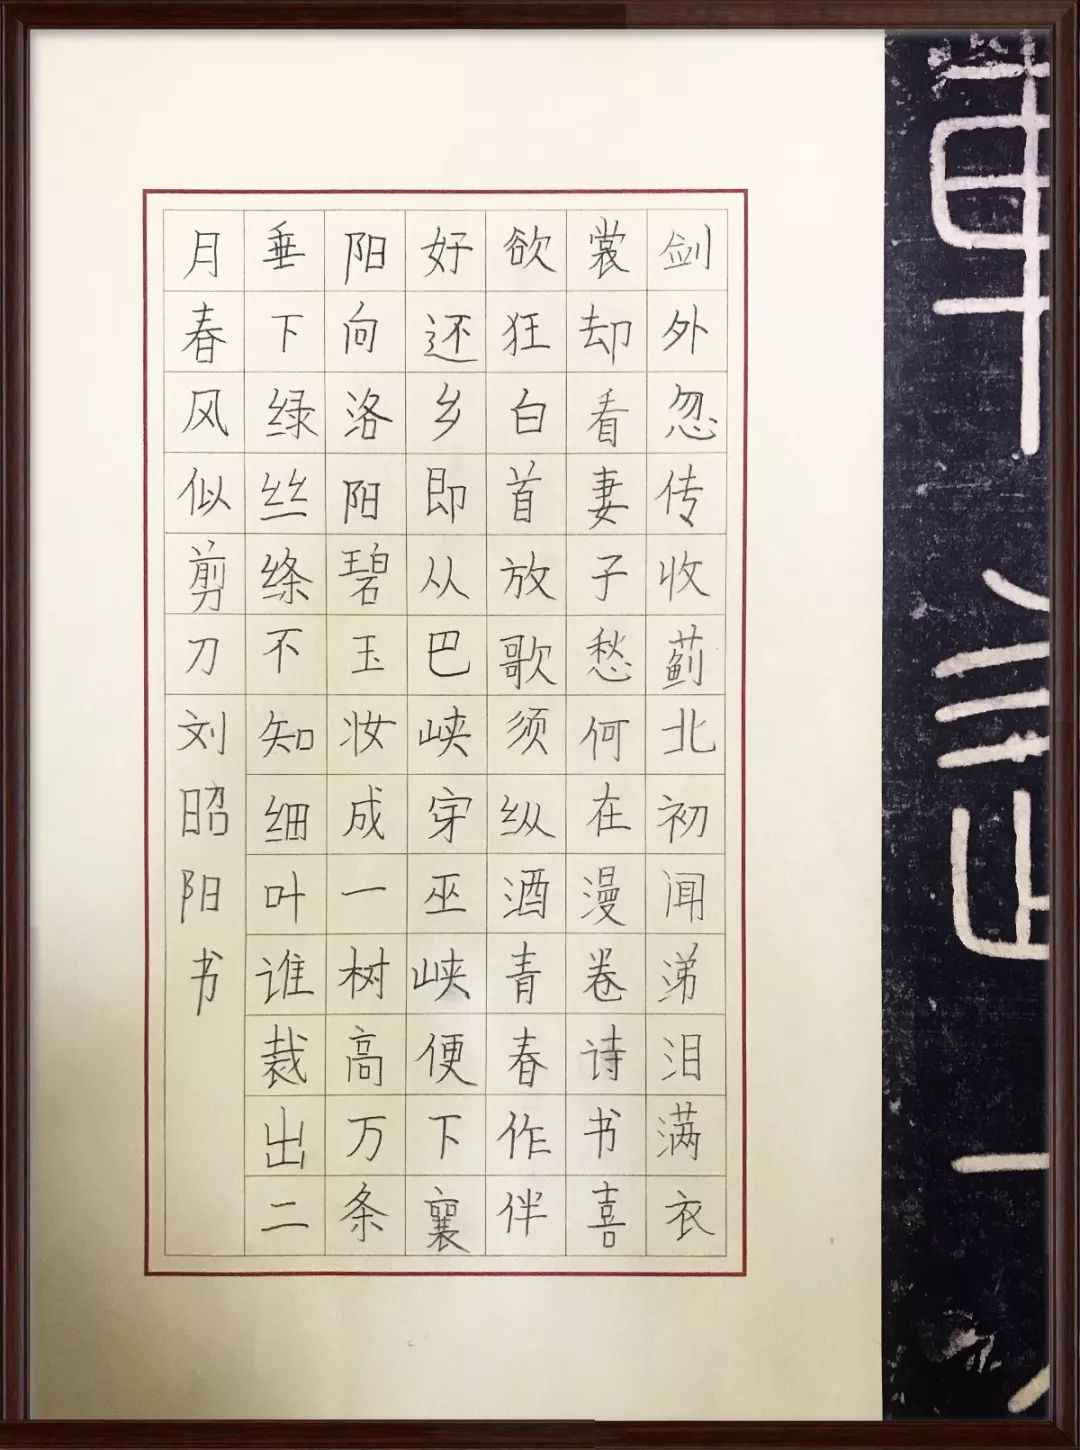 剑外忽传收蓟北初闻涕泪满衣
裳却看妻子愁何在漫卷诗书喜
欲狂白首放歌须纵酒青春作伴
好还乡即从巴峡穿巫峡便下襄
阳向洛阳碧玉妆成一树高万条
垂下绿丝绦不知细叶谁裁出二
月春风似剪刀刘昭阳书